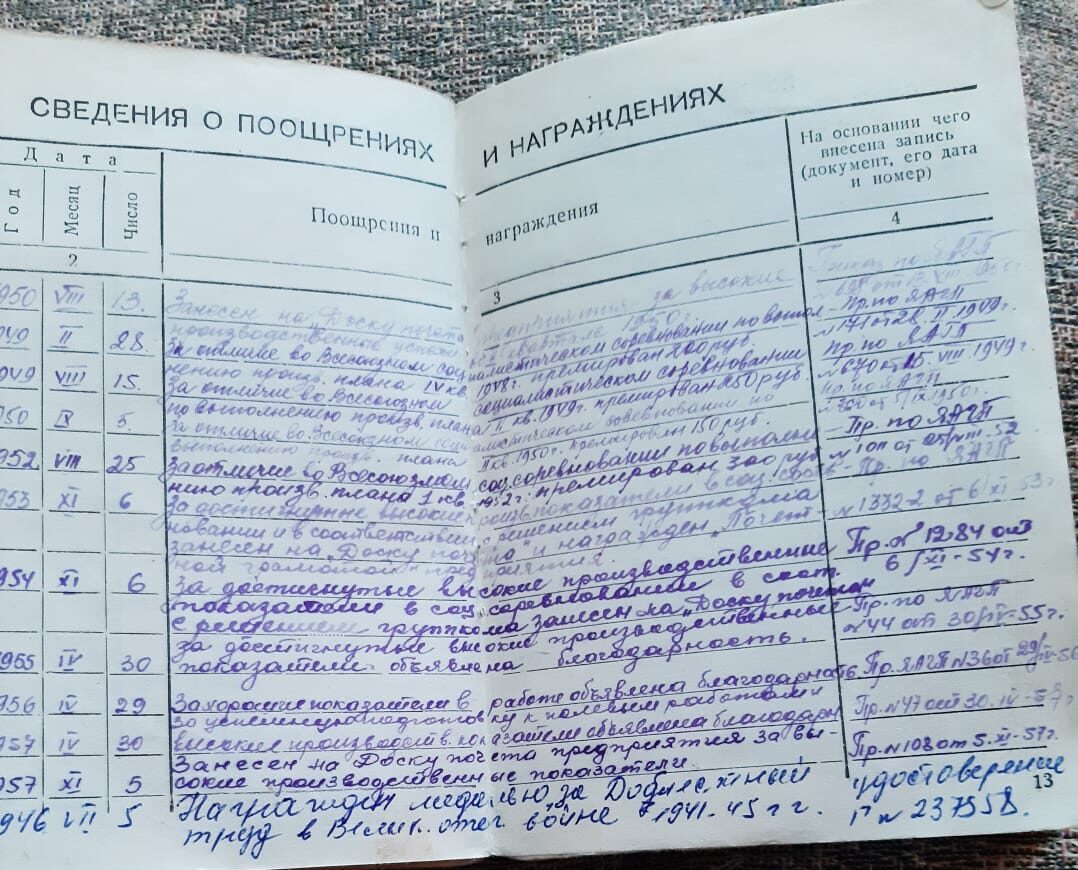 СВЕДЕНИЯ О ПООЩРЕНИЯХ И НАГРАЖДЕНИЯХ
Дата
Год Месяц Число
Поощрения и награждения
На основании чего внесена запись (документ, его дата и номер)
2 3 4
950 VIII 13. Занесен на Доску почета предприятия за высокие
производственные успехи квартале 1950г.
949 II 28. За отличие во Всесоюзном соц иалистическом соревновании по выпол-
нению произв. плана IV кв. 1948г. премирован 200 руб.
Пр. по ЯАГП
№171 от 28. II 1949г.
949 VIII 15. За отличие во Всесоюзном социалистическом соревновании
по выполнению произв. плана II кв. 1949г. премирован 250 руб.
Пр. по ЯАГП
№670 от 15 VIII 1949г.
950 IX 5. За отличие во Всесоюзном соци алистическом соревновании по
выполнению произв. плана II кв. 1950г. премирован 150 руб.
Пр. по ЯАГП
от 5/IX 1950г.
952 VIII 25 За отличие во Всесоюзном соц. соревновании по выполне
нию произв. плана 1 кв. 1952г. премирован 300 руб
Пр. по ЯАГП
от 25/VIII-52
953 XI 6 За достигнутые высокие произв. показатели в соц. сорев-
новании и в соответствии с решением группкома
занесен на "Доску поче та" и награжден "Почет
ной грамотой" пред приятия.
Пр. по ЯАГП
№1332-2 от 6/XI 53г
954 XI 6 За достигнутые высокие производственные
показатели в соц. соревновании в соот.
с решением группкома занесен на "Доску почета"
Пр. № 1284 от
6/XI-54г.
955 IV 30 за достигнутые высокие производственные
показатели объявлена благодарность.
Пр. по ЯАГП
№44 от 30/IV-55г.
956 IV 29 За хорошие показатели в работе объявлена благодарность
Пр. ЯАГП №36 от 29/IV-56
957 IV 30 За успешную подготовку к полевым работам и
высокие производств. показатели объявлена благодарн
Пр. №47 от 30. IV-57г.
957 XI 5 Занесен на Доску почета предприятия за вы-
сокие производственные показатели.
Пр. №108 от 5. XI-57г.
946 VII 5 Награжден медалью за Доблестный
труд в Велик. отеч. войне 1941-45 г г.
удостоверение
№ 237558.
13